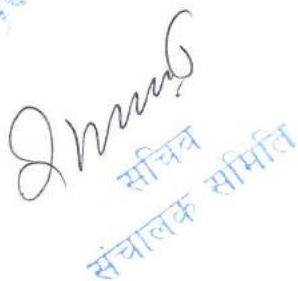 सचिव
संचालक समिति